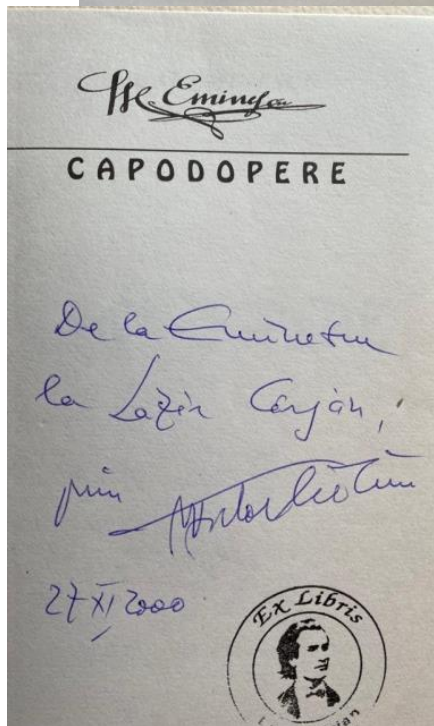 M. Eminescu
CAPODOPERE
De la Eminescu
la Lazăr Cârjan,
prin
27 XI 2000
Ex Libris